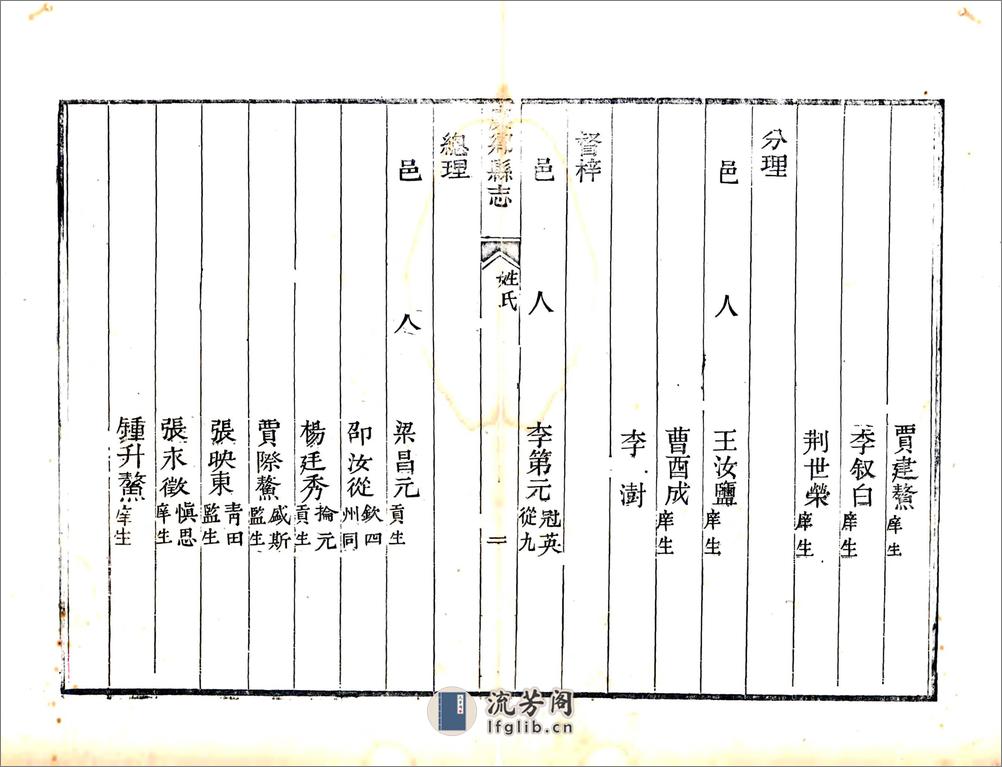 賈建鰲 庠生
李叙白 庠生
荆世榮 庠生
分理
邑人 王汝鹽 庠生
曹酉成 庠生
李澍
督梓
邑人 李第元 冠英 從九
縣志 姓氏 二
總理
邑人 梁昌元 貢生
邵汝從 欽四 州同
楊廷秀 掄元 貢生
賈際鰲 盛斯 監生
張映東 青田 監生
張永徵 慎思 庠生
鍾升鰲 庠生
流芳阁
lfglib.cn